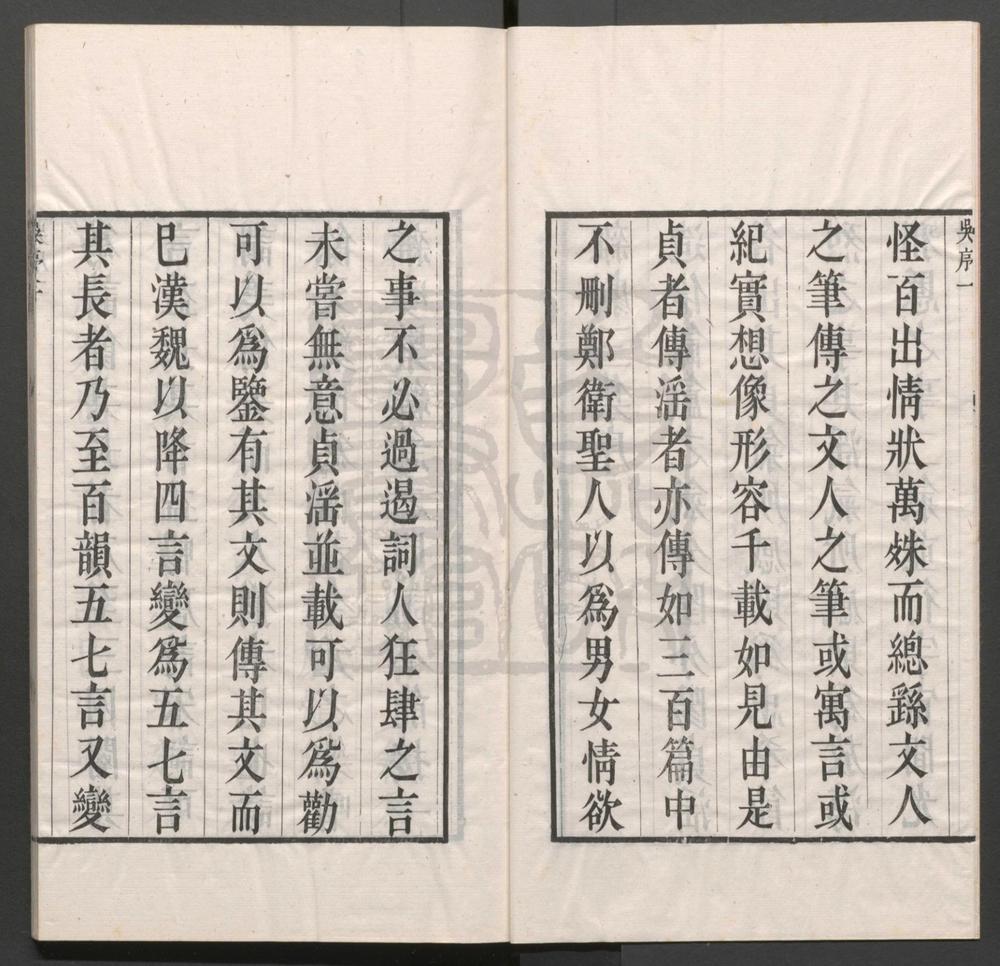 吳序一
怪百出情狀萬姝而總繇文人
之筆傳之文人之筆或寓言或
紀實想像形容千載如見由是
貞者傳滛者亦傳如三百篇中
不刪鄭衛聖人以爲男女情欲
之事不必過遏詞人狂肆之言
未嘗無意貞滛並載可以爲勸
可以爲鑒有其文則傳其文而
巳漢魏以降四言變爲五七言
其長者乃至百韻五七言又變